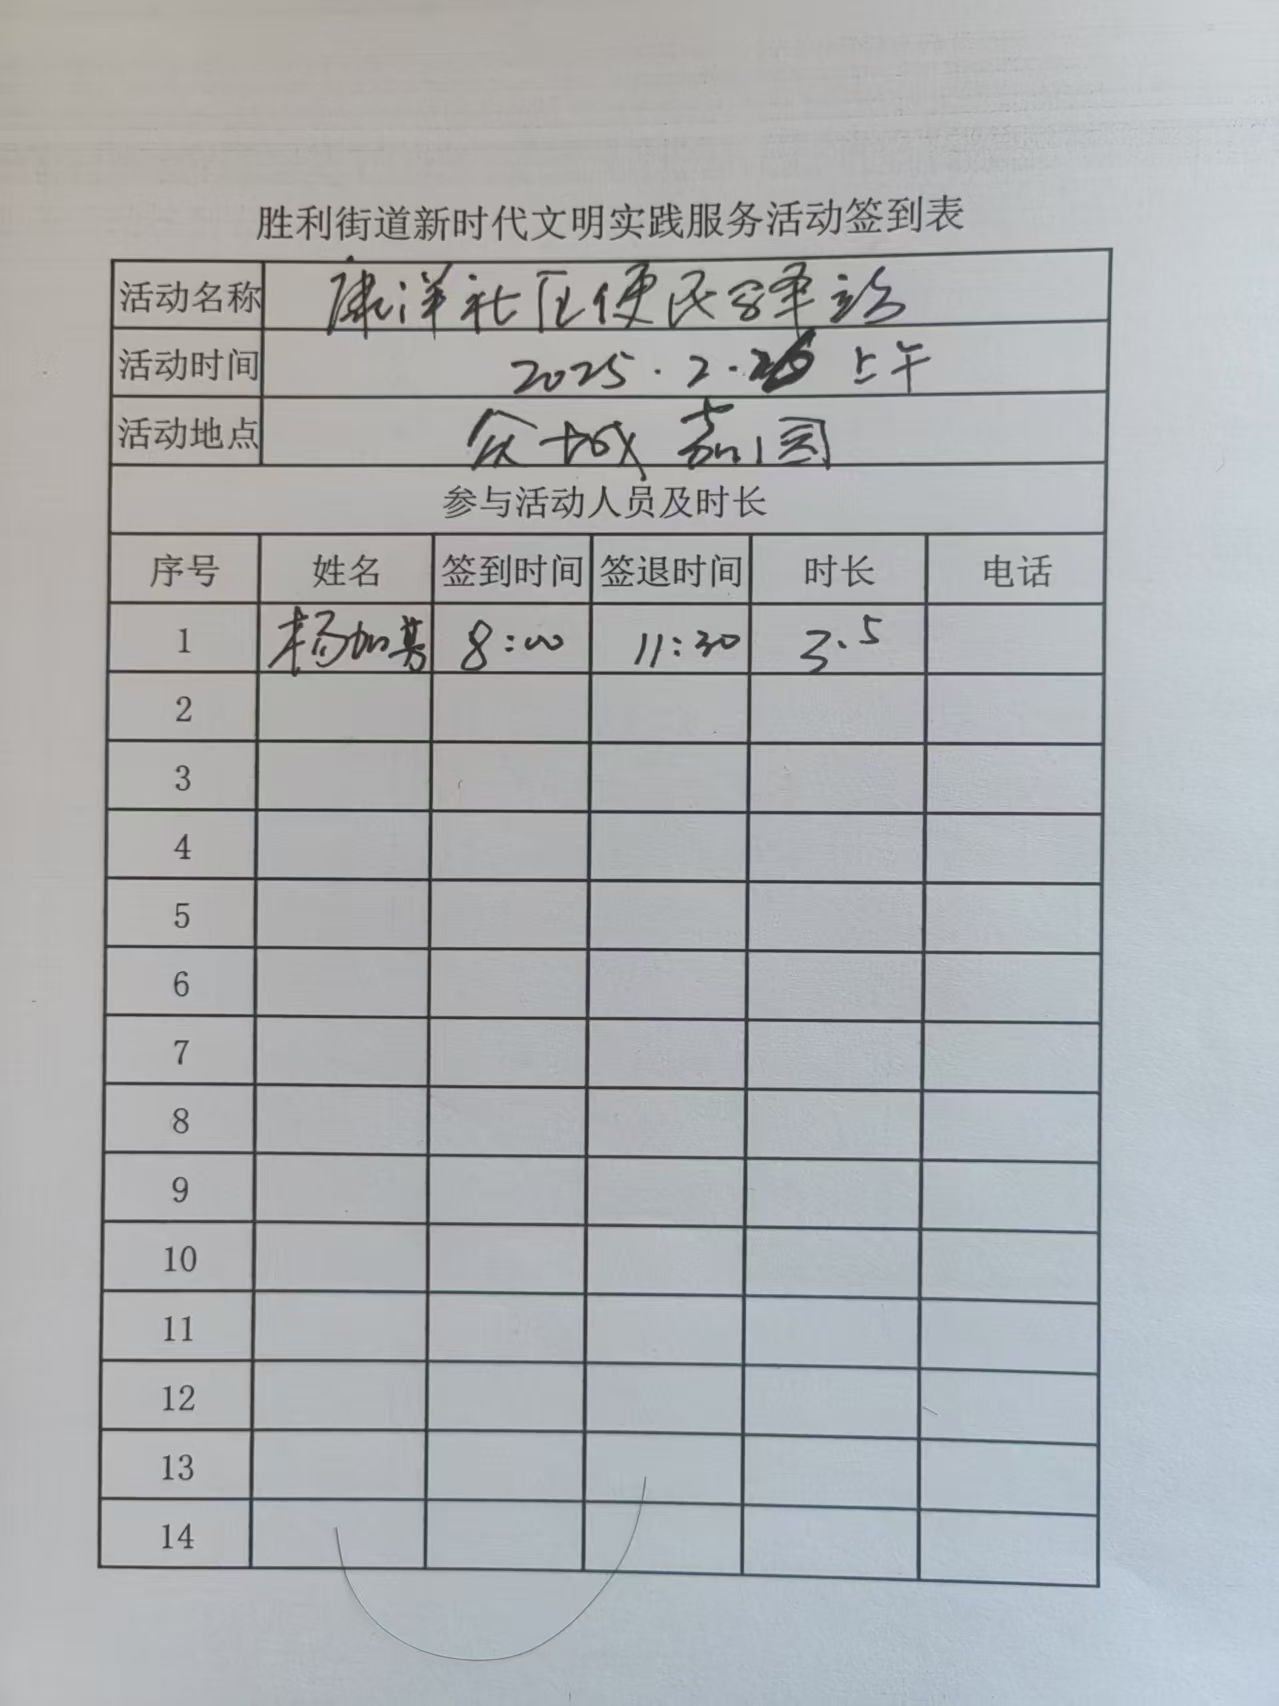 胜利街道新时代文明实践服务活动签到表
活动名称 康洋社区便民驿站
活动时间 2025.2.26 上午
活动地点 众城嘉园
参与活动人员及时长
序号 姓名 签到时间 签退时间 时长 电话
1 杨加 8:00 11:30 3.5
2
3
4
5
6
7
8
9
10
11
12
13
14